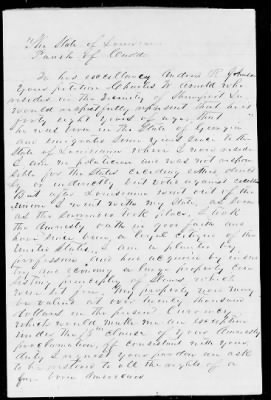 The State of Louisiana
Parish of Caddo
To his excellency Andrew R Johnson
Your petitioner Charles W who
resides in the Vicinity of Shreveport La
would respectfully represent that he is
forty eight years of age, that
he was born in the State of Georgia
and emigrated Some years since to the
State of Louisiana where I now reside
I am no politician and was not respon
sible for the States seceding either direct
ly or indirectly but voted against secession
But after Louisiana went out of the
union I went with my State, as soon
as the surrender took place, I took
the Amnesty oath in good faith and
have since been a loyal citizen of the
United States, I am a planter by
profession and had acquired by indus
try and economy a large property con
sisting principally of Slaves which
now are gone My property now may
be valued at over twenty thousand
dollars in the present Currency
which would make me an exception
under the 13th clause of your Amnesty
proclamation, if consistent with your
duty I request your pardon an ask
to be restored to all the rights of a
free born American